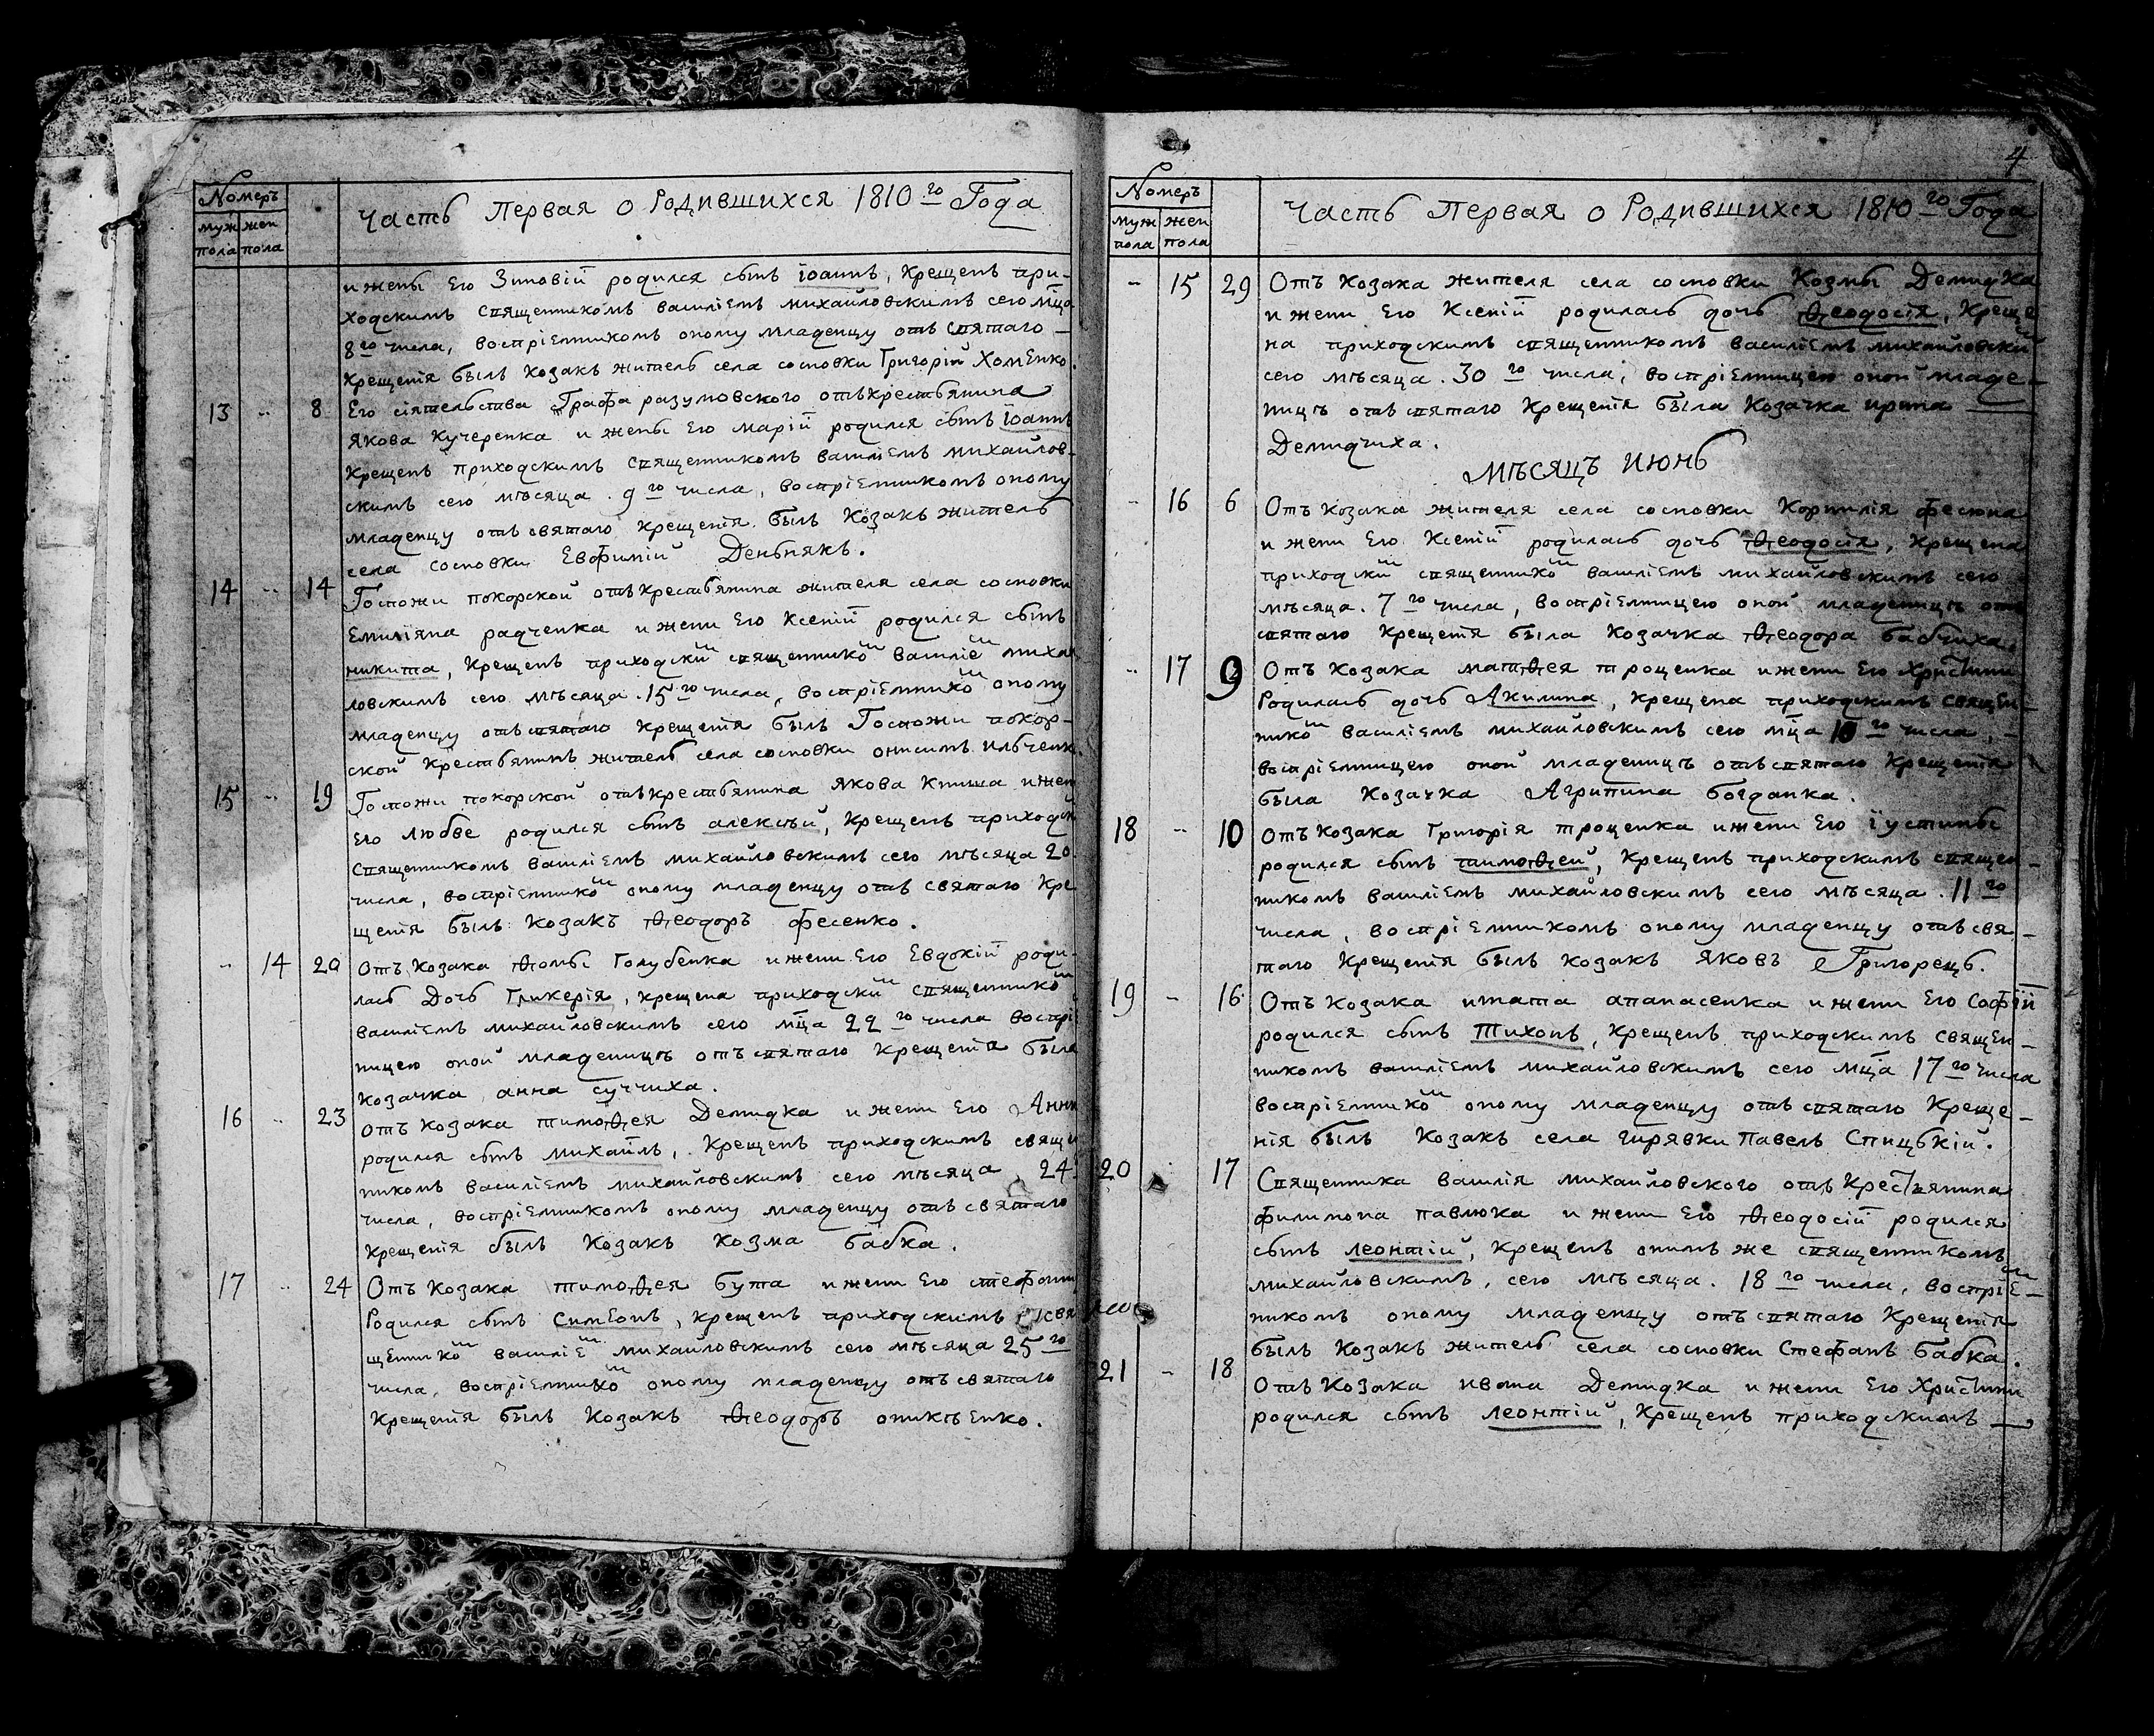 Номеръ
муж жен
пола пола
Часть Первая о Родившихся 1810го Года
и жены Его Зиновій родился сынъ іоаннъ, Крещенъ при-
ходскимъ священникомъ василіемъ михайловскимъ сего мца
8го числа, воспріемникомъ оному младенцу отъ святаго
Крещенія былъ козакъ житель села сосновки Григорій Хоменко.
13 .. 8 Его сіятельства Графа разумовского отъ крестьянина
якова Кучеренка и жены Его маріи родился сынъ іоаннъ
Крещенъ приходскимъ священникомъ василіемъ михайлов-
скимъ сего мѣсяца 9го числа, воспріемникомъ оному
младенцу отъ святаго Крещенія былъ Козакъ житель
села сосновки Евфимій
14 .. 14 Госпожи покорской отъ крестьянина жителя села сосновки
Емиліяна радченка и жени Его Ксеніи родился сынъ
никита, Крещенъ приходскимъ священникомъ василіе миха
ловскимъ сего мѣсяца 15го числа, воспріемнико оному
младенцу отъ святаго Крещенія былъ Госпожи покор-
ской Крестьянинъ житель села сосновки онисимъ ильченк
15 .. 19 Госпожи покорской отъ крестьянина якова Книша и жен
Его любве родился сынъ алексѣй, Крещенъ приходск
священникомъ василіемъ михайловскимъ сего мѣсяца 20
числа, воспріемнико оному младенцу отъ святаго Кре
щенія былъ козакъ Ѳеодоръ фесенко.
.. 14 20 Отъ Козака Ѳомы Голубенка и жени Его Евдокіи роди-
лась Дочь Гликерія, крещена приходски священнико
василіемъ михайловскимъ сего мца 22го числа воспрі
ницею оной младеницѣ отъ святаго Крещенія была
козачка анна суччиха.
16 .. 23 отъ козака тимоѳея Демидка и жени Его Анни
родился сынъ михаилъ, Крещенъ приходскимъ свящ
никомъ василіемъ михайловскимъ сего мѣсяца 24
числа, воспріемникомъ оному младенцу отъ святаго
крещенія былъ Козакъ Козма бабка.
17 .. 24 Отъ Козака тимоѳея бута и жени Его стефани
Родился сынъ Симеонъ, крещенъ приходскимъ свя
щеннико василіе михайловскимъ сего мѣсяца 25го
числа, воспріемнико оному младенцу отъ святаго
Крещенія былъ Козакъ Ѳеодоръ оникѣенко.
4
Номеръ
муж жен
пола пола
Часть Первая о Родившихся 1810го Года
- 15 29 Отъ Козака жителя села сосновки Козмы Демидка
и жени Его Ксеніи родилась дочь Ѳеодосія, Креще
на приходскимъ священникомъ василіемъ михайловски
сего мѣсяца 30го числа, воспріемницею оной младе-
ницѣ отъ святаго Крещенія была Козачка ирина
Демидчиха.
Мѣсяцъ Июнь
- 16 6 Отъ Козака жителя села сосновки Корнилія фесюна
и жени Его Ксеніи родилась дочь Ѳеодосія, Крещена
приходски священнико василіемъ михайловскимъ сего
мѣсяца 7го числа, воспріемницею оной младеницѣ отъ
святаго Крещенія была Козачка Ѳеодора бабчиха.
.. 17 9 Отъ Козака матѳея троценка и жени Его Христини
Родилась дочь Акилина, Крещена приходскимъ священ-
нико василіемъ михайловскимъ сего мца 10го числа, -
воспріемницею оной младеницѣ отъ святаго Крещенія
была Козачка Агрипина богданка.
18 .. 10 Отъ Козака Григорія троценка и жени Его іустины
родился сынъ тимоѳей, Крещенъ приходскимъ священ-
никомъ василіемъ михайловскимъ сего мѣсяца 11го
числа, воспріемникомъ оному младенцу отъ свя-
таго Крещенія былъ козакъ яковъ Григорецъ.
19 - 16 Отъ Козака игната апанасенка и жени Его Софіи
родился сынъ Тихонъ, Крещенъ приходскимъ священ-
никомъ василіемъ михайловскимъ сего мца 17го числа
воспріемнико оному младенцу отъ святаго Креще-
нія былъ Козакъ села гирявки Павелъ Спицькій.
20 17 Священника василія михайловского отъ Крестянина
филимона павлюка и жени Его Ѳеодосіи родился
сынъ леонтій, Крещенъ онимъ же священникомъ
михайловскимъ, сего мѣсяца 18го числа, воспріем-
никомъ оному младенцу отъ святаго Крещенія
былъ Козакъ житель села сосновки Стефанъ бабка.
21 - 18 Отъ Козака ивана Демидка и жени Его Христини
родился сынъ леонтій, Крещенъ приходскимъ